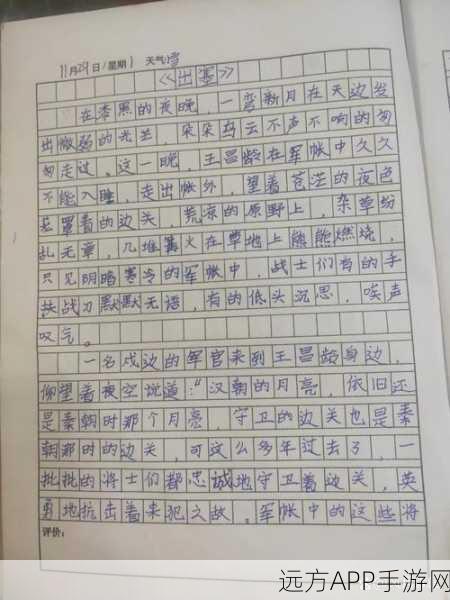 11月29日/星期1 天气雪
《出塞》
在漆黑的夜晚，一弯新月在天边发
出微弱的光芒，朵朵乌云不声不响的匆
匆走过。这一晚，王昌龄在军帐中久久
不能入睡，走出帐外，望着苍茫的夜色
笼罩着的边关，荒凉的原野上，杂草纷
乱无章，几堆篝火在草地上熊熊燃烧，
只见阴暗寒冷的军帐中，战士们有的手
扶战刀默默无语，有的低头沉思，唉声
叹气。
一名戍边的军官来到王昌龄身边，
仰望着夜空说道："汉朝的月亮，依旧还
是秦朝时那个月亮，守卫的边关也是秦
朝那时的边关，可这么多年过去了，一
批批的将士们都忠诚地守卫着边关，英
勇地抗击着来犯之敌。军帐中的这些将
评价：
远方APP手游网